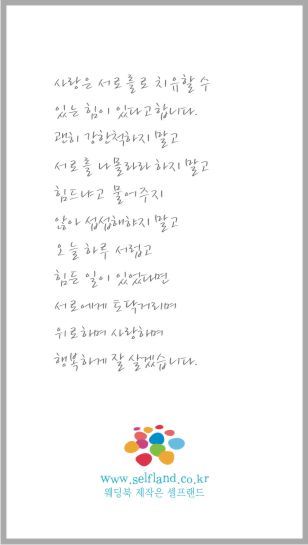 사랑은 서로를로 치유할 수
있는 힘이 있다고합니다.
괜히 강한척하지 말고
서로를 나몰라라 하지 말고
힘드냐고 물어주지
않아 섭섭해하지 말고
오늘 하루 서럽고
힘든 일이 있었다면
서로에게 토닥거리며
위로하며 사랑하며
행복하게 잘 살겠습니다.
www.selfland.co.kr
웨딩북 제작은 셀프랜드